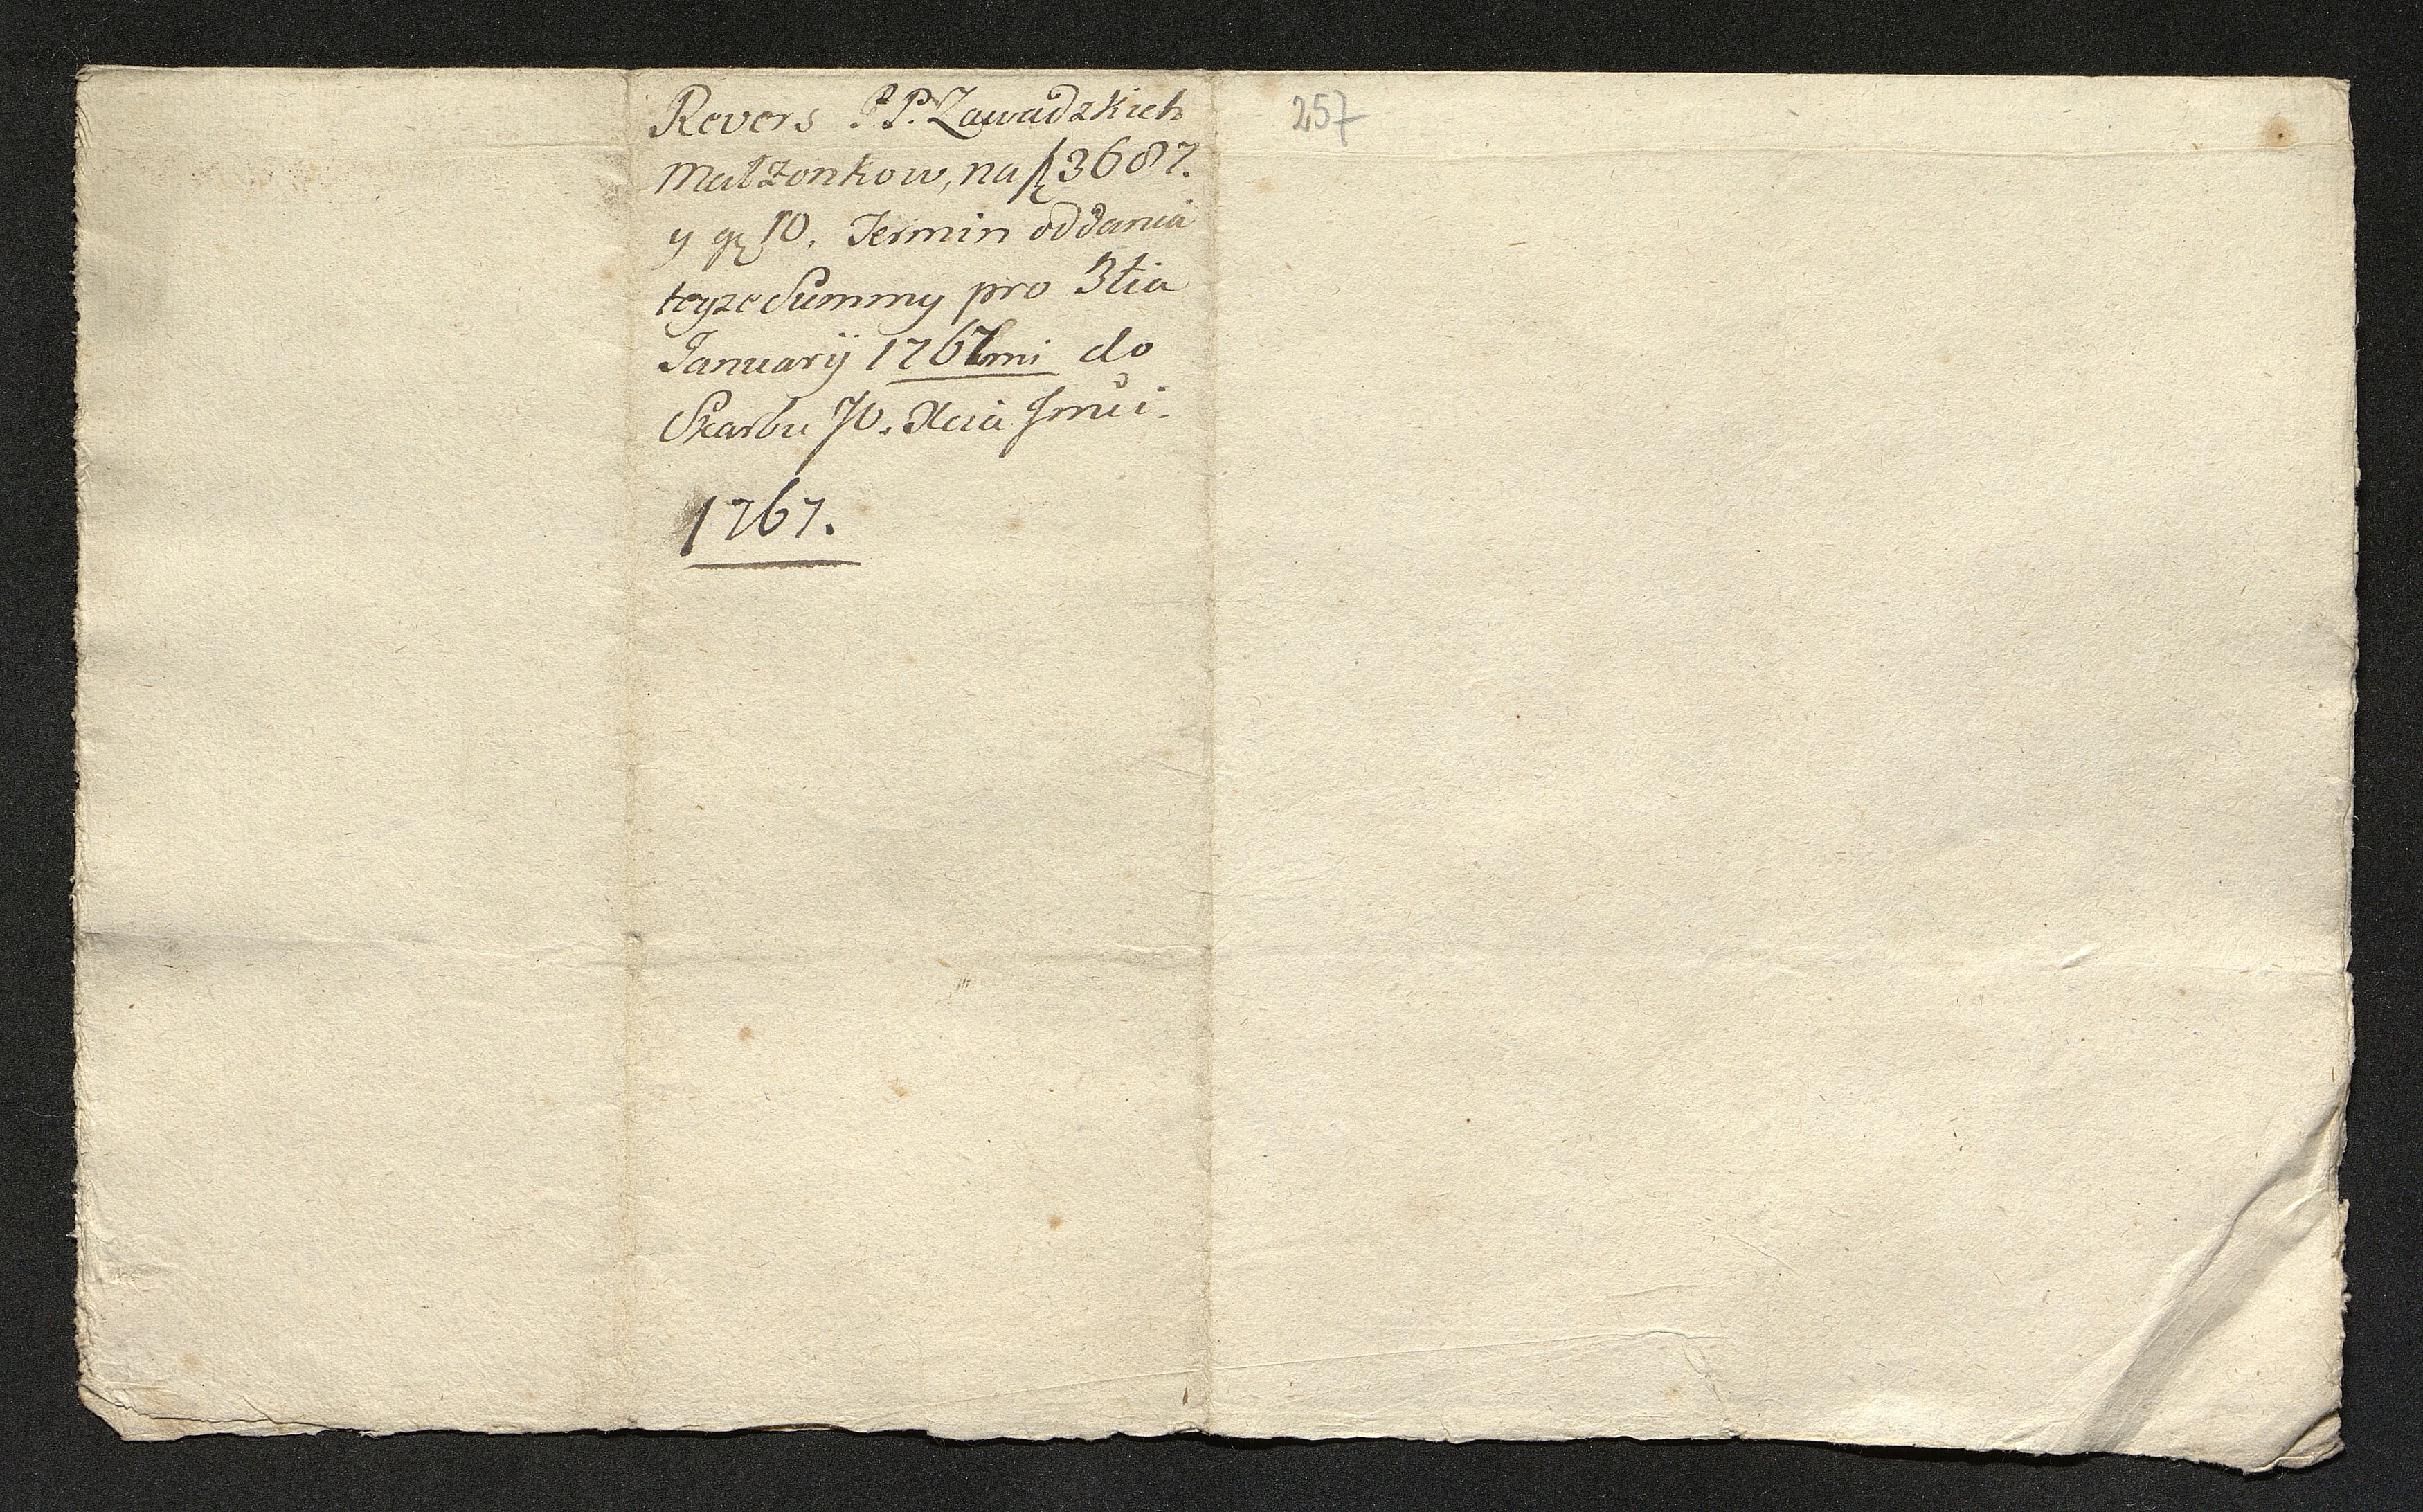 Revers P.P. Zawadzkich
Małżonkow, na fl 3687.
y gr 10. Termin oddania
teyze Summy pro 3tia
Januarij 1767mi do
Skarbu JO. Xcia Jmci.
1767.
257